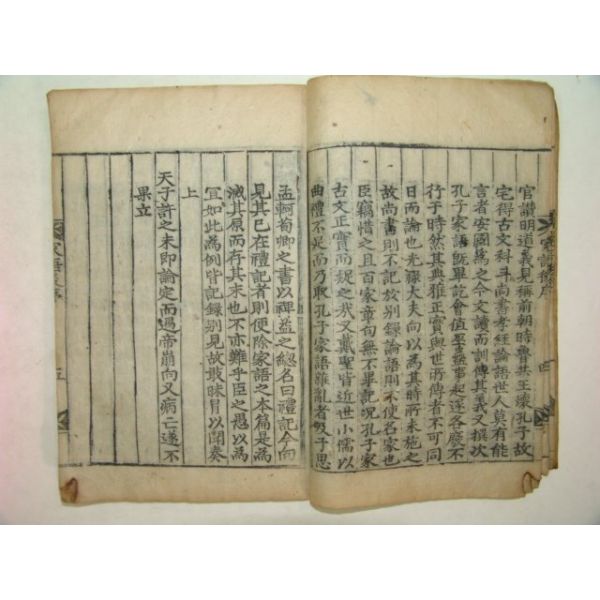 官讚明道義見稱前朝時魯共王壞孔子故
宅得古文科斗尚書孝經論語世人莫有能
言者安國爲之今文讀而訓傳其義又撰次
孔子家語旣畢訖會值巫蠱事起遂各廢不
行于時然其典雅正實與世所傳者不可同
日而論也光祿大夫向以爲其時所未施之
故尚書則不記於別録論語則不使名家也
臣竊惜之且百家章句無不畢記況孔子家
古文正實而疑之哉又戴聖皆近世小儒以
曲禮不足而乃取孔子家語雜亂者及子思
孟軻荀卿之書以裨益之緫名曰禮記今向
見其已在禮記者則便除家語之本篇是爲
滅其原而存其末也不亦難乎臣之愚以爲
宜如此爲例皆記録別見故敢昧冒以聞奏
上
天子許之未即論定而遇帝崩向又病亡遂不
果立